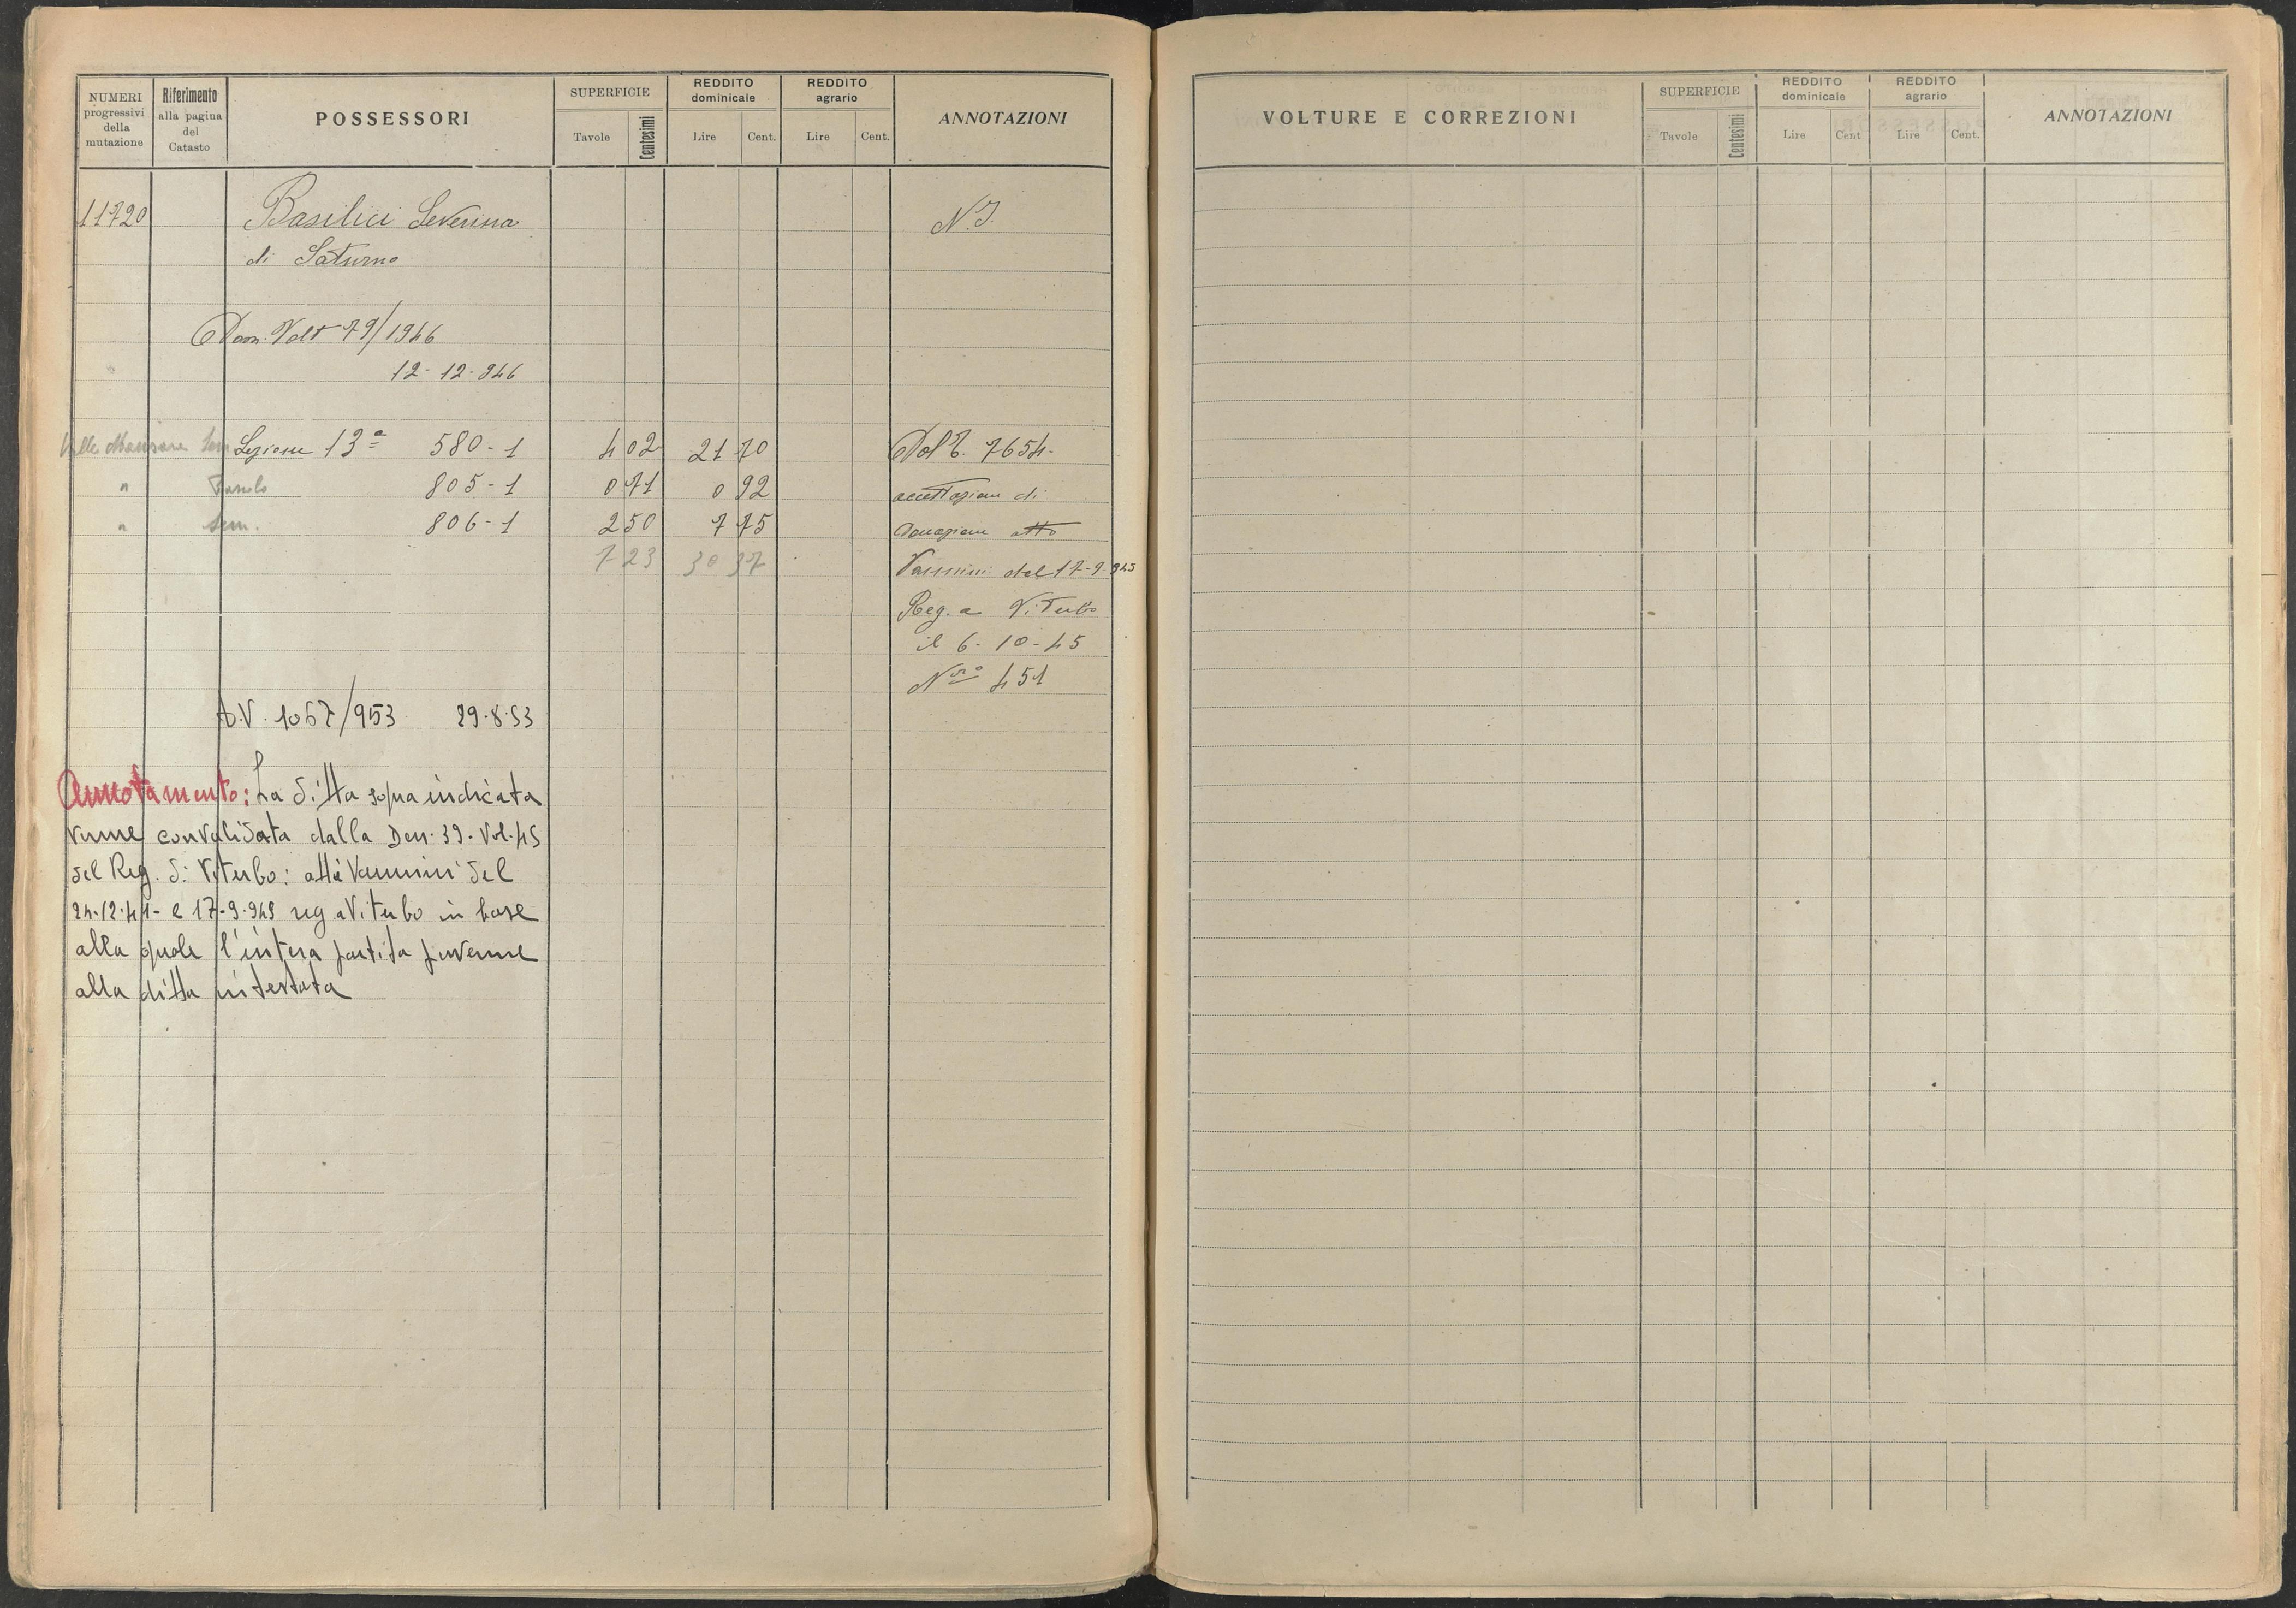 NUMERI progressivi della mutazione | Riferimento alla pagina del Catasto | POSSESSORI | SUPERFICIE Tavole Centesimi | REDDITO dominicale Lire Cent. | REDDITO agrario Lire Cent. | ANNOTAZIONI
11720 Basilici Severina N.I.
di Saturno
Dom. Volt 79/1946
12-12-946
Valle Sem Legione 13ª 580-1 4 02 21 70 Dal 7654-
" 805-1 0 71 0 92 accettazione di
" Sem. 806-1 2 50 7 75 donazione atto
7 23 30 37 Vannini del 17-9-945
Reg. a Viterbo
il 6-10-45
Nº 451
D.V. 1067/953 29.8.53
Annotamento: La ditta sopra indicata
venne convalidata dalla Den. 39. Vol. 45
del Reg. di Viterbo: atti Vannini del
24.12.41- e 17.9.945 reg a Viterbo in base
alla quale l'intera partita pervenne
alla ditta intestata
VOLTURE E CORREZIONI | SUPERFICIE Tavole Centesimi | REDDITO dominicale Lire Cent | REDDITO agrario Lire Cent. | ANNOTAZIONI